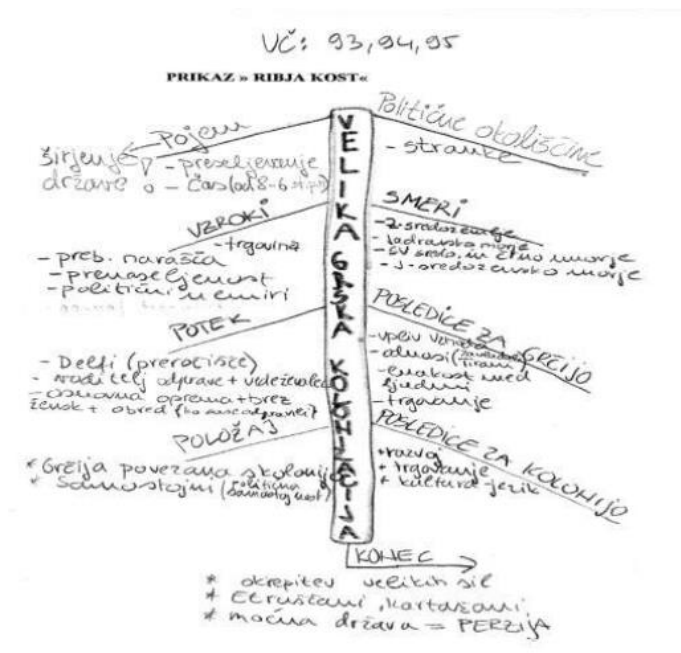 UČ: 93, 94, 95
PRIKAZ » RIBJA KOST«
VELIKA GRŠKA KOLONIZACIJA
Pojem
širjenje
države
- preseljevanje
- Čas (od 8-6
VZROKI
- trgovina
- preb. narašča
- prenaseljenost
- politični nemiri
POTEK
- Delfi (preročišče)
- voditelj odprave + vedeževalec
- osnovna oprema + brez
žensk + obred
POLOŽAJ
* Grčija povezana s kolonijo
* Samostojni (politična
samostojnost)
Politične okoliščine
- stranke
SMERI
- Z. sredozemlje
- Jadransko morje
- SV sredo. in Črno morje
- J. sredozemsko morje
POSLEDICE ZA GRČIJO
- vpliv
- odnosi
tirani)
- enakost med
ljudmi
- trgovanje
POSLEDICE ZA KOLONIJO
+ razvoj
+ trgovanje
+ kultura-jezik
KONEC
* okrepitev velikih sil
* Etruščani, Kartažani
* močna država = PERZIJA